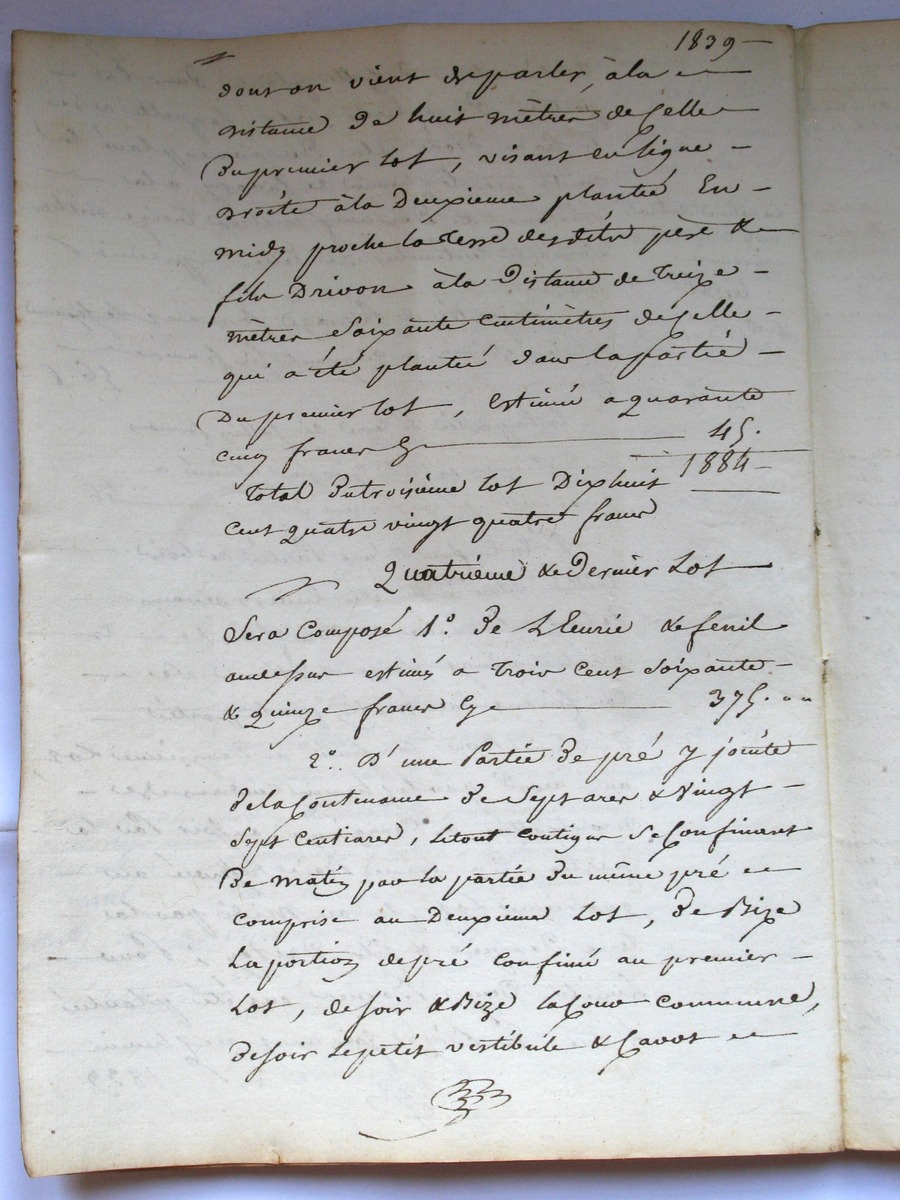 1839 –
dont on vient de parler, à la
distance de huit mètres de celle
du premier lot, visant en ligne –
droite à la deuxieme plantée en –
midy proche la terre desdits père &
fils Drivon à la distance de treize –
mètres soixante centimètres de celle –
qui a été plantée dans la partie –
du premier lot, estimée a quarante
cinq francs Cy 45.
Total du troisième lot Dix huit 1884 –
cent quatre vingt quatre francs
Quatrième & Dernier Lot
Sera Composé 1.° de L'Ecurie & fenil
au dessus estimés a trois cent soixante –
& quinze francs Cy 375. " "
2.° D'une Partie de pré y jointe
de la Contenance de Sept ares & Vingt –
Sept Centiares, le tout contigu se Confinant
De matin par la partie du même pré
comprise au Deuxieme Lot, de Bize
La portion de pré confiné au premier –
Lot, de soir & Bize la Cour commune,
de soir le petit vestibule & Cavot